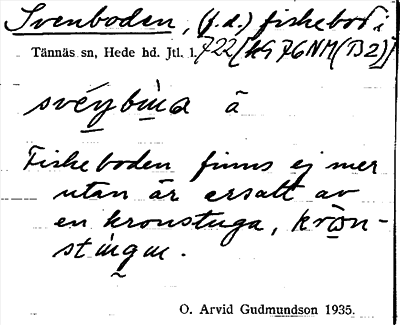 Svenboden, (f.d.) fiskebod i
Tännäs sn, Hede hd. Jtl. l. 722 [HG 76 NM (B2)]
svéybùɑ ä
Fiskeboden finns ej mer
utan är ersatt av
en kronstuga, kròn-
stùgɯ.
O. Arvid Gudmundson 1935.